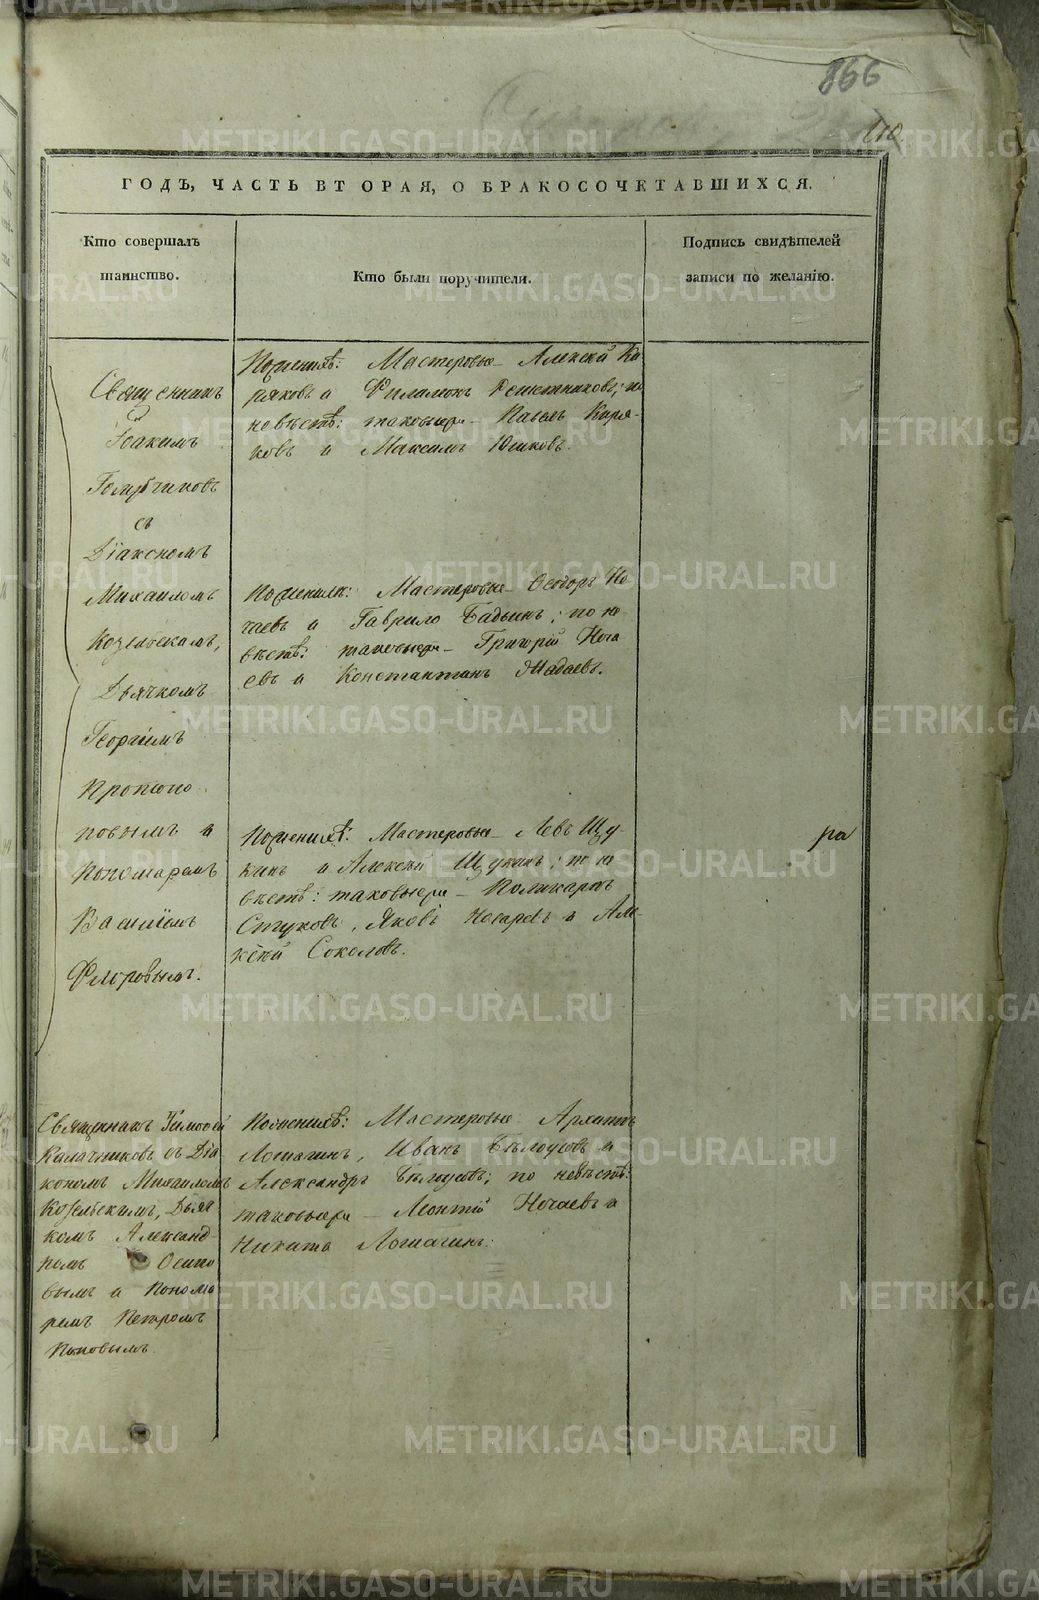 866
110
ГОДЪ, ЧАСТЬ ВТОРАЯ, О БРАКОСОЧЕТАВШИХСЯ.
Кто совершалъ
таинство.
Кто были поручители.
Подпись свидѣтелей
записи по желанію.
Священникъ
Іоакимъ
съ
Діакономъ
Михаиломъ
Козельскимъ,
Дьячкомъ
Георгіемъ
новымъ и
Пономаремъ
Василіемъ
Флоровымъ.
По женихѣ: Мастеровые Алексѣй Ка
ряковъ и Филимонъ Решетниковъ; по
невѣстѣ: таковыеже Павелъ Каря-
ковъ и Максимъ Юшковъ.
По женихѣ: Мастеровые Ѳеодоръ Но
гаевъ и Гаврило Бадьинъ; по не
вѣстѣ: таковыеже Григорій Нога
евъ и Константинъ Жадаевъ.
По женихѣ: Мастеровые Левъ Щу-
кинъ и Алексѣй Щукинъ; по не
вѣстѣ: таковыеже Поликарпъ
Стуковъ, Яковъ и Але-
ксѣй Соколовъ.
ра
Священникъ Тимоѳей
Калачниковъ съ Діа
кономъ Михаиломъ
Козельскимъ, Дьяч
комъ Александ
ромъ Осипо
вымъ и Понома
ремъ Петромъ
Поповымъ.
По женихѣ: Мастеровые Архипъ
Лошагинъ, Иванъ Бѣлоусовъ и
Александръ Бѣлоусовъ; по невѣстѣ:
таковыеже Леонтій Ногаевъ и
Никита Лошагинъ.
METRIKI.GASO-URAL.RU